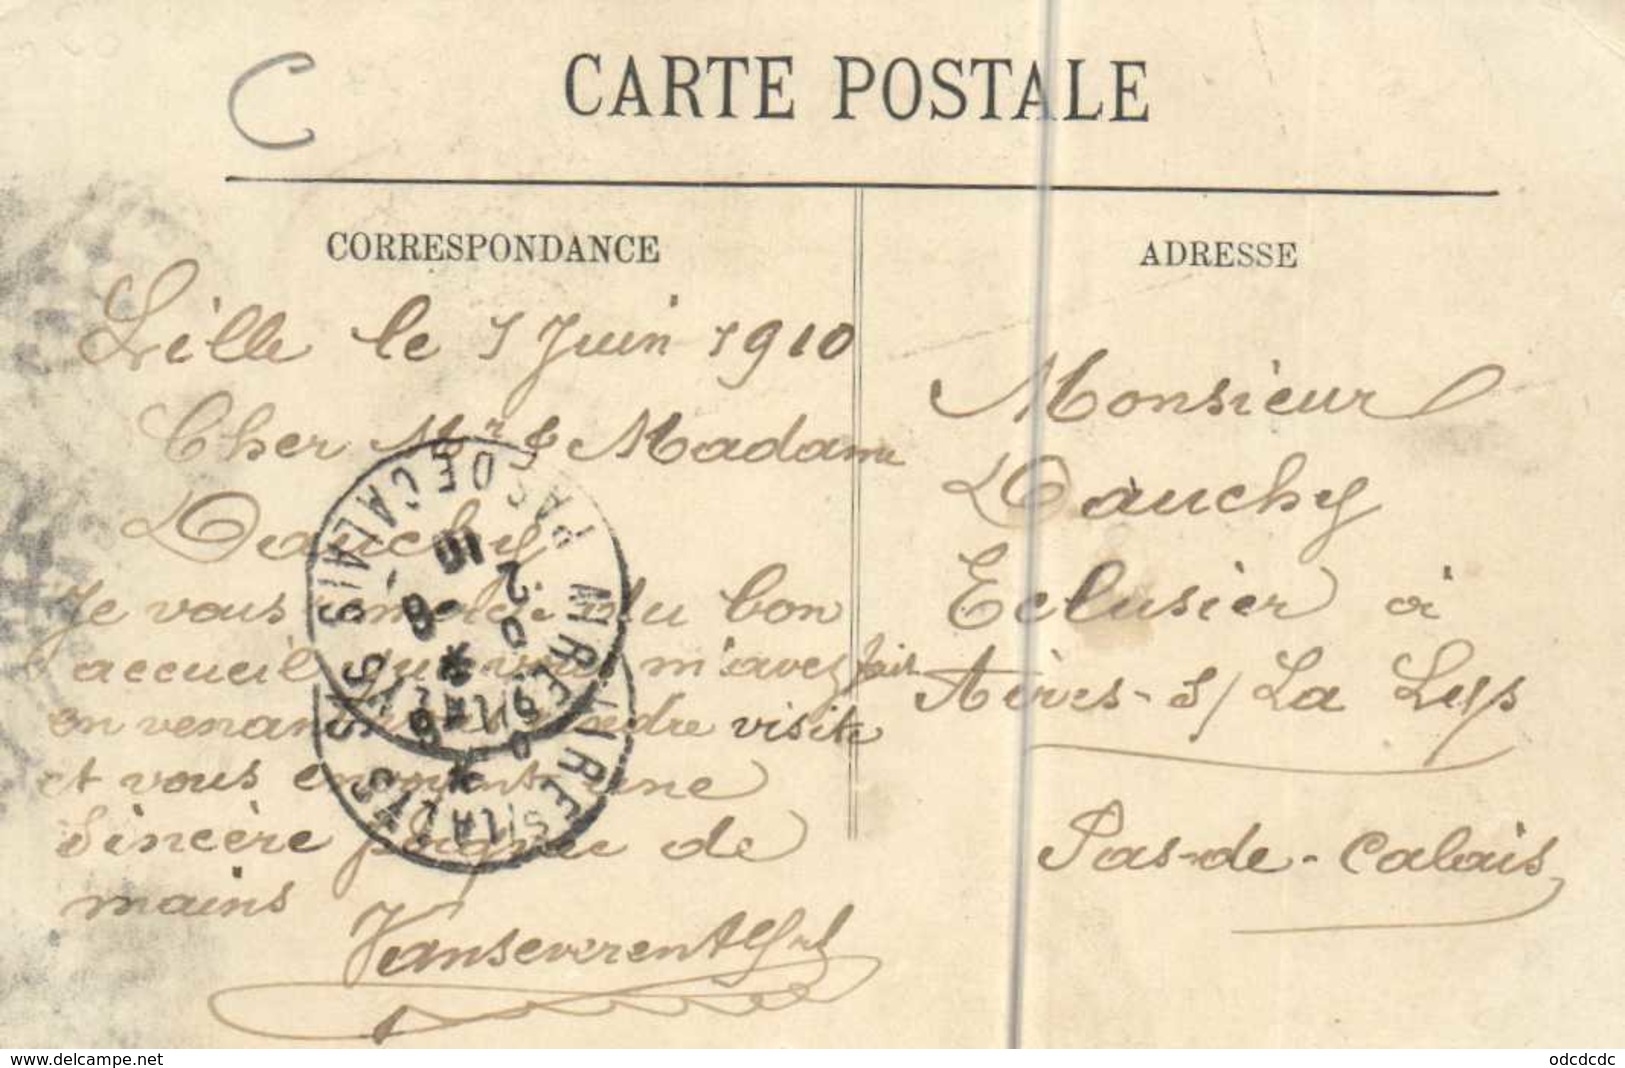 C
CARTE POSTALE
CORRESPONDANCE
Lille le 1 Juin 1910
Cher Mr & Madame
Dauchy
Je vous du bon
accueil que vous m'avez fait
en venant rendre visite
et vous une
Sincère poignée de
mains
Vanseveren Alfred
ADRESSE
Monsieur
Dauchy
Eclusier à
Aires-s/ La Lys
Pas-de-Calais
AIRE S/LA LYS
PAS DE CALAIS
www.delcampe.net
odcdcdc